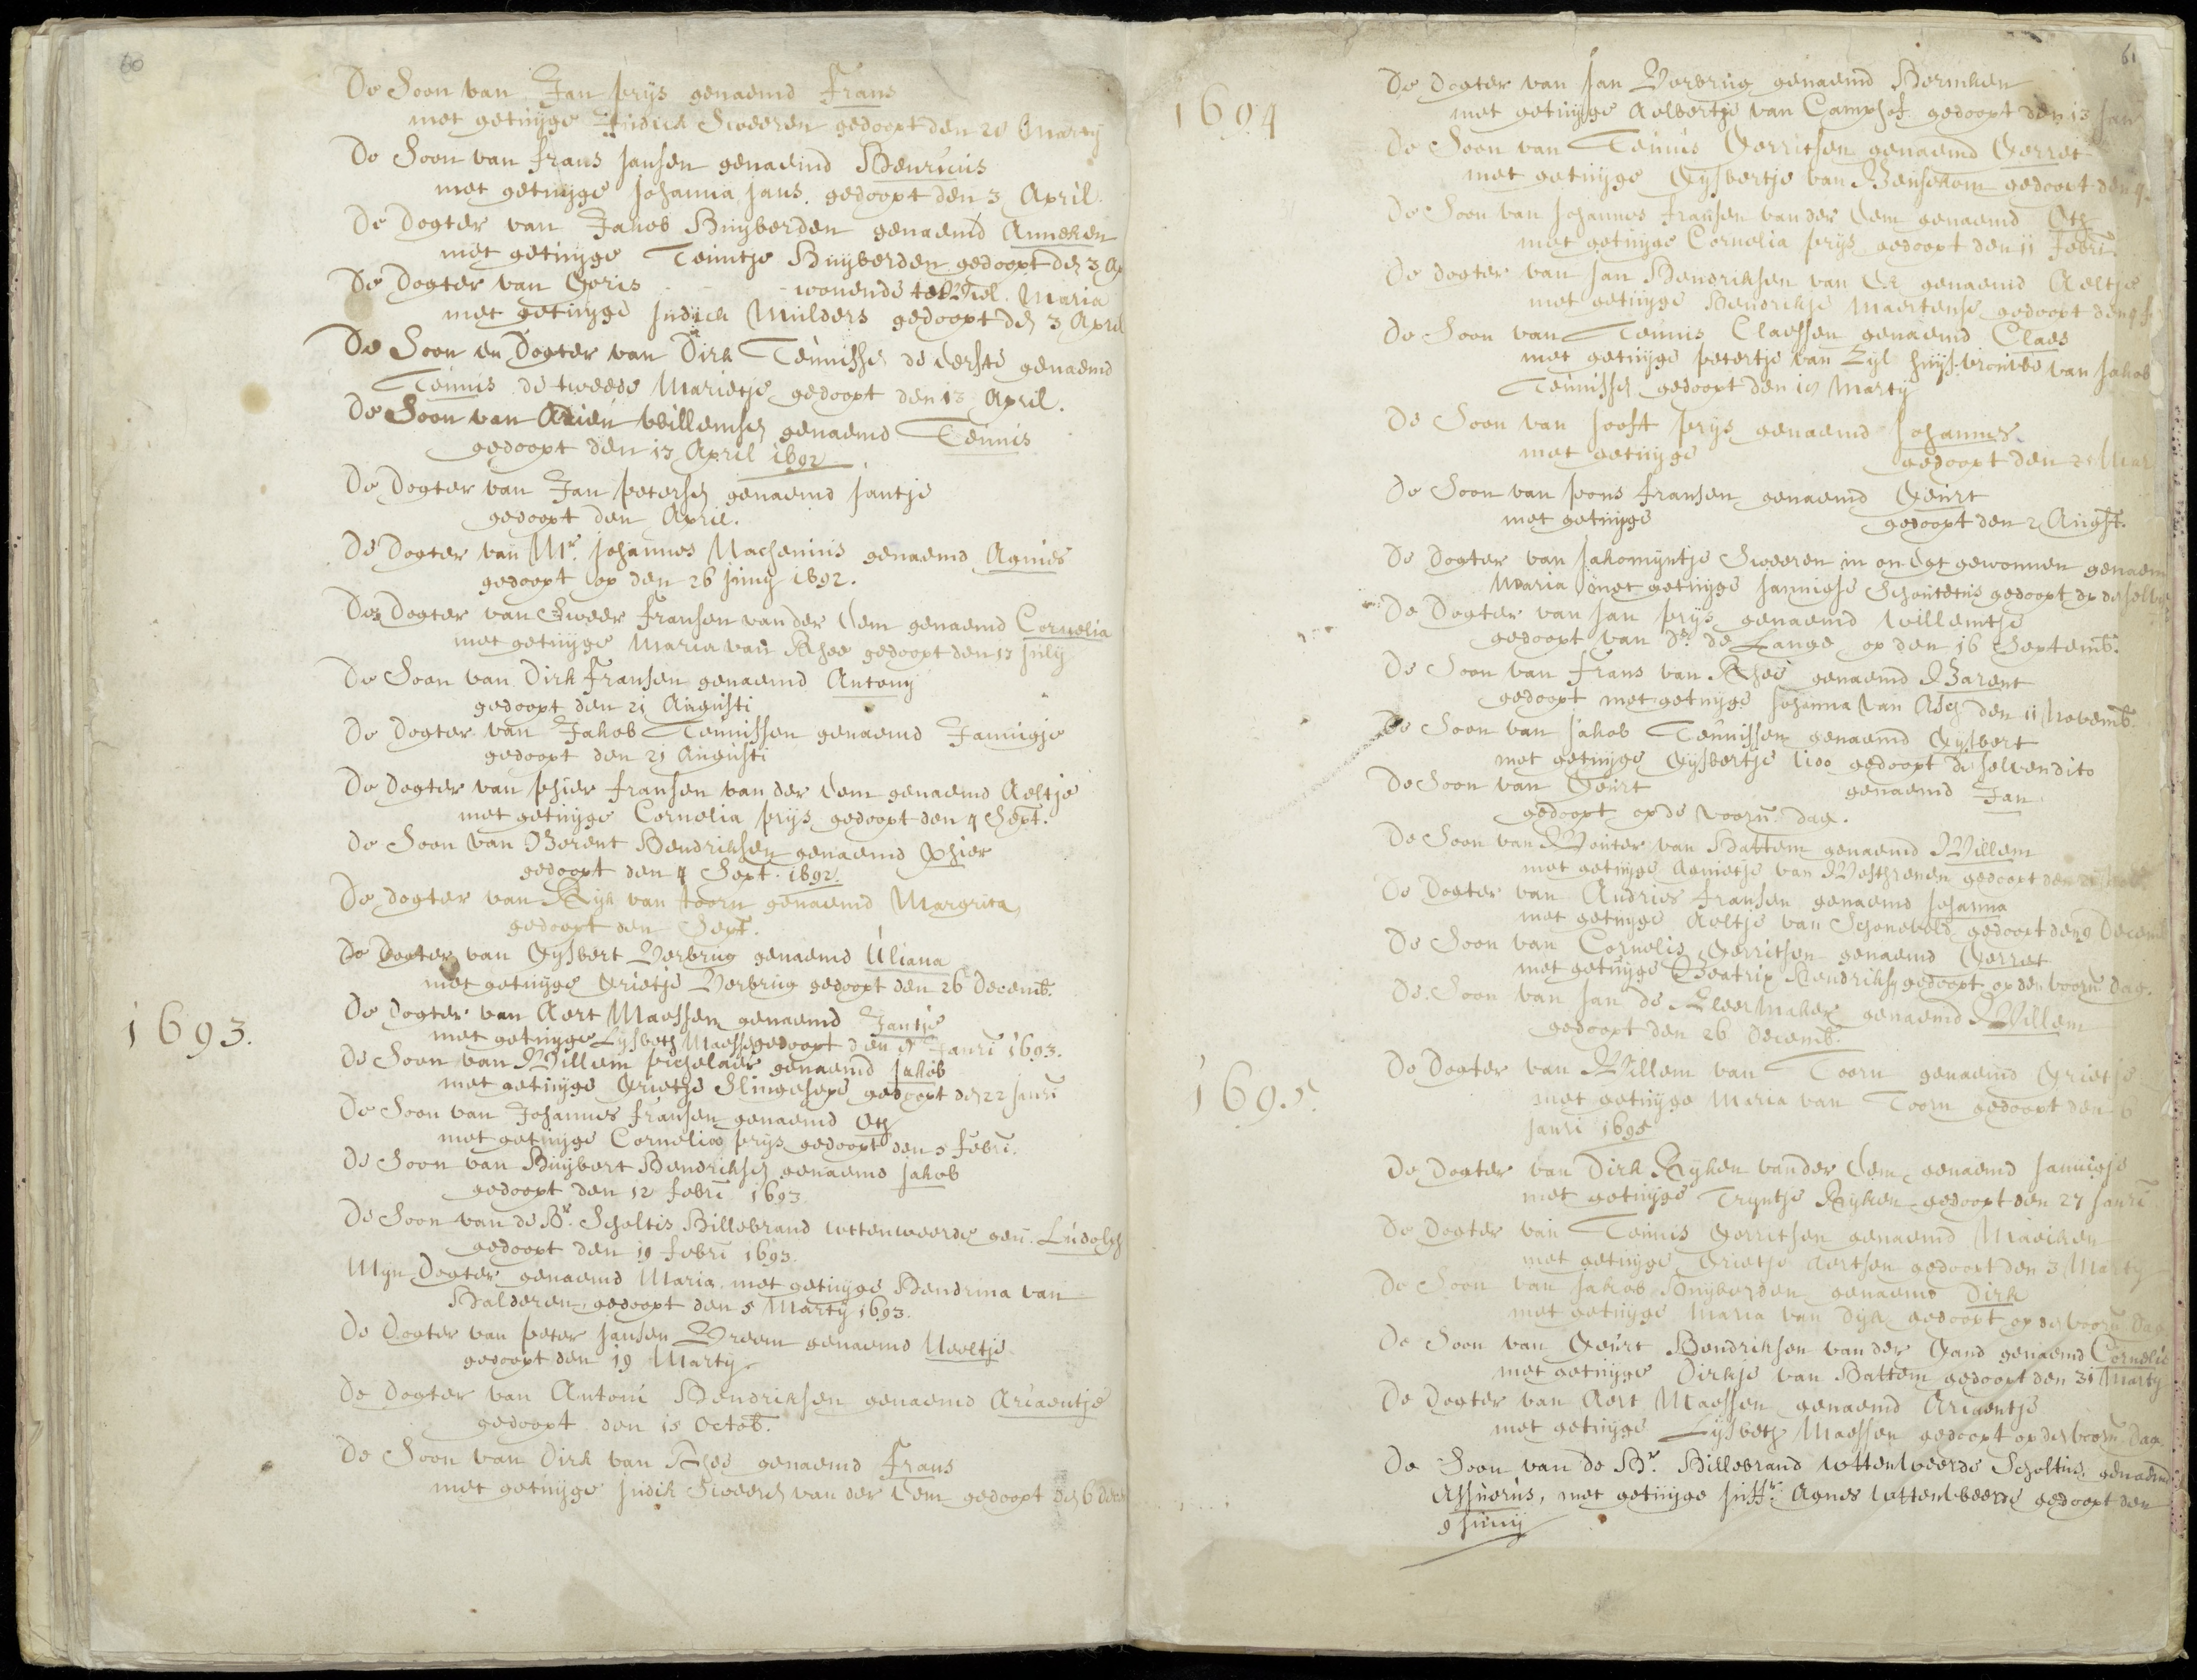 60
De Soon van Jan prijs genaemd Frans
met getuijge Judick Sweeren gedoopt den 28 Martij
De Soon van frans Jansen genaemd Henricus
met getuijge Johanna Jans. gedoopt den 3 April.
De Dogter van Jakob Huijberden genaemd Anneken
met getuijge Teuntje Huijberden gedoopt den 3 Ap
De Dogter van Goris wonende te Tiel. Maria
met getuijge Judick Mulders gedoopt den 3 April
De Soon en Dogter van Dirk Teunissen de eerste genaemd
Teunis de tweede Marietje gedoopt den 13 April.
De Soon van Arien Willemsen genaemd Teunis
gedoopt den 13 April 1692
De Dogter van Jan petersen genaemd Jantje
gedoopt den April.
De Dogter van Mr. Johannes Machenius genaemd Agnies
gedoopt op den 26 Junij 1692.
De Dogter van Sweer fransen van der Eem genaemd Cornelia
met getuijge Maria van Rhee gedoopt den 13 Julij
De Soon van Dirk fransen genaemd Antonij
gedoopt den 21 Augusti
De Dogter van Jakob Teunissen genaemd Jannigje
gedoopt den 21 Augusti
De Dogter van phier fransen van der Eem genaemd Aeltje
met getuijge Cornelia prijs gedoopt den 4 Sept.
De Soon van Berent Hendriksen genaemd phier
gedoopt den 4 Sept. 1692.
De dogter van Rijk van toorn genaemd Margrita
gedoopt den Sept.
De Dogter van Gijsbert Verbrug genaemd Uliana
met getuijge Grietje Verbrug gedoopt den 26 Decemb.
1693.
De Dogter van Aert Maessen genaemd Jantje
met getuijge Lijsbeth Maesse gedoopt den Janri 1693.
De Soon van Willem pichelaer genaemd Jakob
met getuijge Grietje gedoopt den 22 Janri
De Soon van Johannes fransen genaemd Oth
met getuijge Cornelia prijs gedoopt den 5 febri.
De Soon van Huijbert Hendriksen genaemd Jakob
gedoopt den 12 febri 1693
De Soon van de Hr. Scholtis Hillebrand Wttenweerde gen. Ludolph
gedoopt den 19 febri 1693.
Mijn Dogter genaemd Maria met getuijge Hendrina van
Balderen, gedoopt den 5 Martij 1693.
De Dogter van peter Jansen Vreem genaemd Neeltje
gedoopt den 19 Martij
De Dogter van Antoni Hendriksen genaemd Ariaentje
gedoopt den 15 Octob.
De Soon van Dirk van Rhee genaemd frans
met getuijge Judik Sweers van der Eem gedoopt den 6 Dec
61
1694
De Dogter van Jan Verbrug genaemd Hermken
met getuijge Aelbertje van Camphof gedoopt den 13 Jan
De Soon van Teunis Gerritsen genaemd Gerret
met getuijge Gijsbertje van Bensekom gedoopt den 4
De Soon van Johannes fransen van der Eem genaemd Oth
met getuijge Cornelia prijs gedoopt den 11 febri.
De dogter van Jan Hendriksen van Ek genaemd Aeltje
met getuijge Hendrikje Maertense gedoopt den
De Soon van Teunis Claessen genaemd Claes
met getuijge petertje van Zijl huijsvrouwe van Jakob
Teunissen gedoopt den 18 Martij
De Soon van Joost prijs genaemd Johannes
met getuijge gedoopt den 25 Mar
De Soon van pons fransen genaemd Geurt
met getuijge gedoopt den 2 Augst.
De Dogter van Jakomijntje Sweeren in on Egt gewonnen genaem
Maria met getuijge Jannigje Schoutetus gedoopt op deselve
De Dogter van Jan prijs genaemd Willemtje
gedoopt van Ds. de Lange op den 16 Septemb.
De Soon van frans van Rhee genaemd Barent
gedoopt met getuijge Johanna van Asch den 11 Novemb.
De Soon van Jakob Teunissen genaemd Gijsbert
met getuijge Gijsbertje gedoopt de selven dito
De Soon van Geurt genaemd Jan
gedoopt op de voorn. dag.
De Soon van Wouter van Hattem genaemd Willem
met getuijge Agnietje van Westhrenen gedoopt den 21 Nov
De Dogter van Andries fransen genaemd Johanna
met getuijge Aeltje van Schoneveld gedoopt den 9 Decemb
De Soon van Cornelis Gerritsen genaemd Gerret
met getuijge Beatrix Hendriks gedoopt op den voorn dag.
De Soon van Jan de Kleermaker genaemd Willem
gedoopt den 26 Decemb.
1695.
De Dogter van Willem van Toorn genaemd Grietje
met getuijge Maria van Toorn gedoopt den 6
Janri 1695
De Dogter van Dirk Rijken van der Eem genaemd Jannigje
met getuijge Trijntje Rijken gedoopt den 27 Janri
De Dogter van Teunis Gerritsen genaemd Maeiken
met getuijge Grietje Aertsen gedoopt den 3 Martij
De Soon van Jakob Huijberden genaemd Dirk
met getuijge Maria van Dijk gedoopt op de voorn Dag
De Soon van Geurt Hendriksen van der Gand genaemd Cornelis
met getuijge Dirkje van Hattem gedoopt den 31 Martij
De Dogter van Aert Maessen genaemd Ariaentje
met getuijge Lijsbeth Maessen gedoopt op den voorn Dag.
De Soon van de Hr. Hillebrand Wttenweerde Scholtus, genaemd
Assuerus, met getuijge Juffr. Agnes Wttenweerde gedoopt den
9 Junij